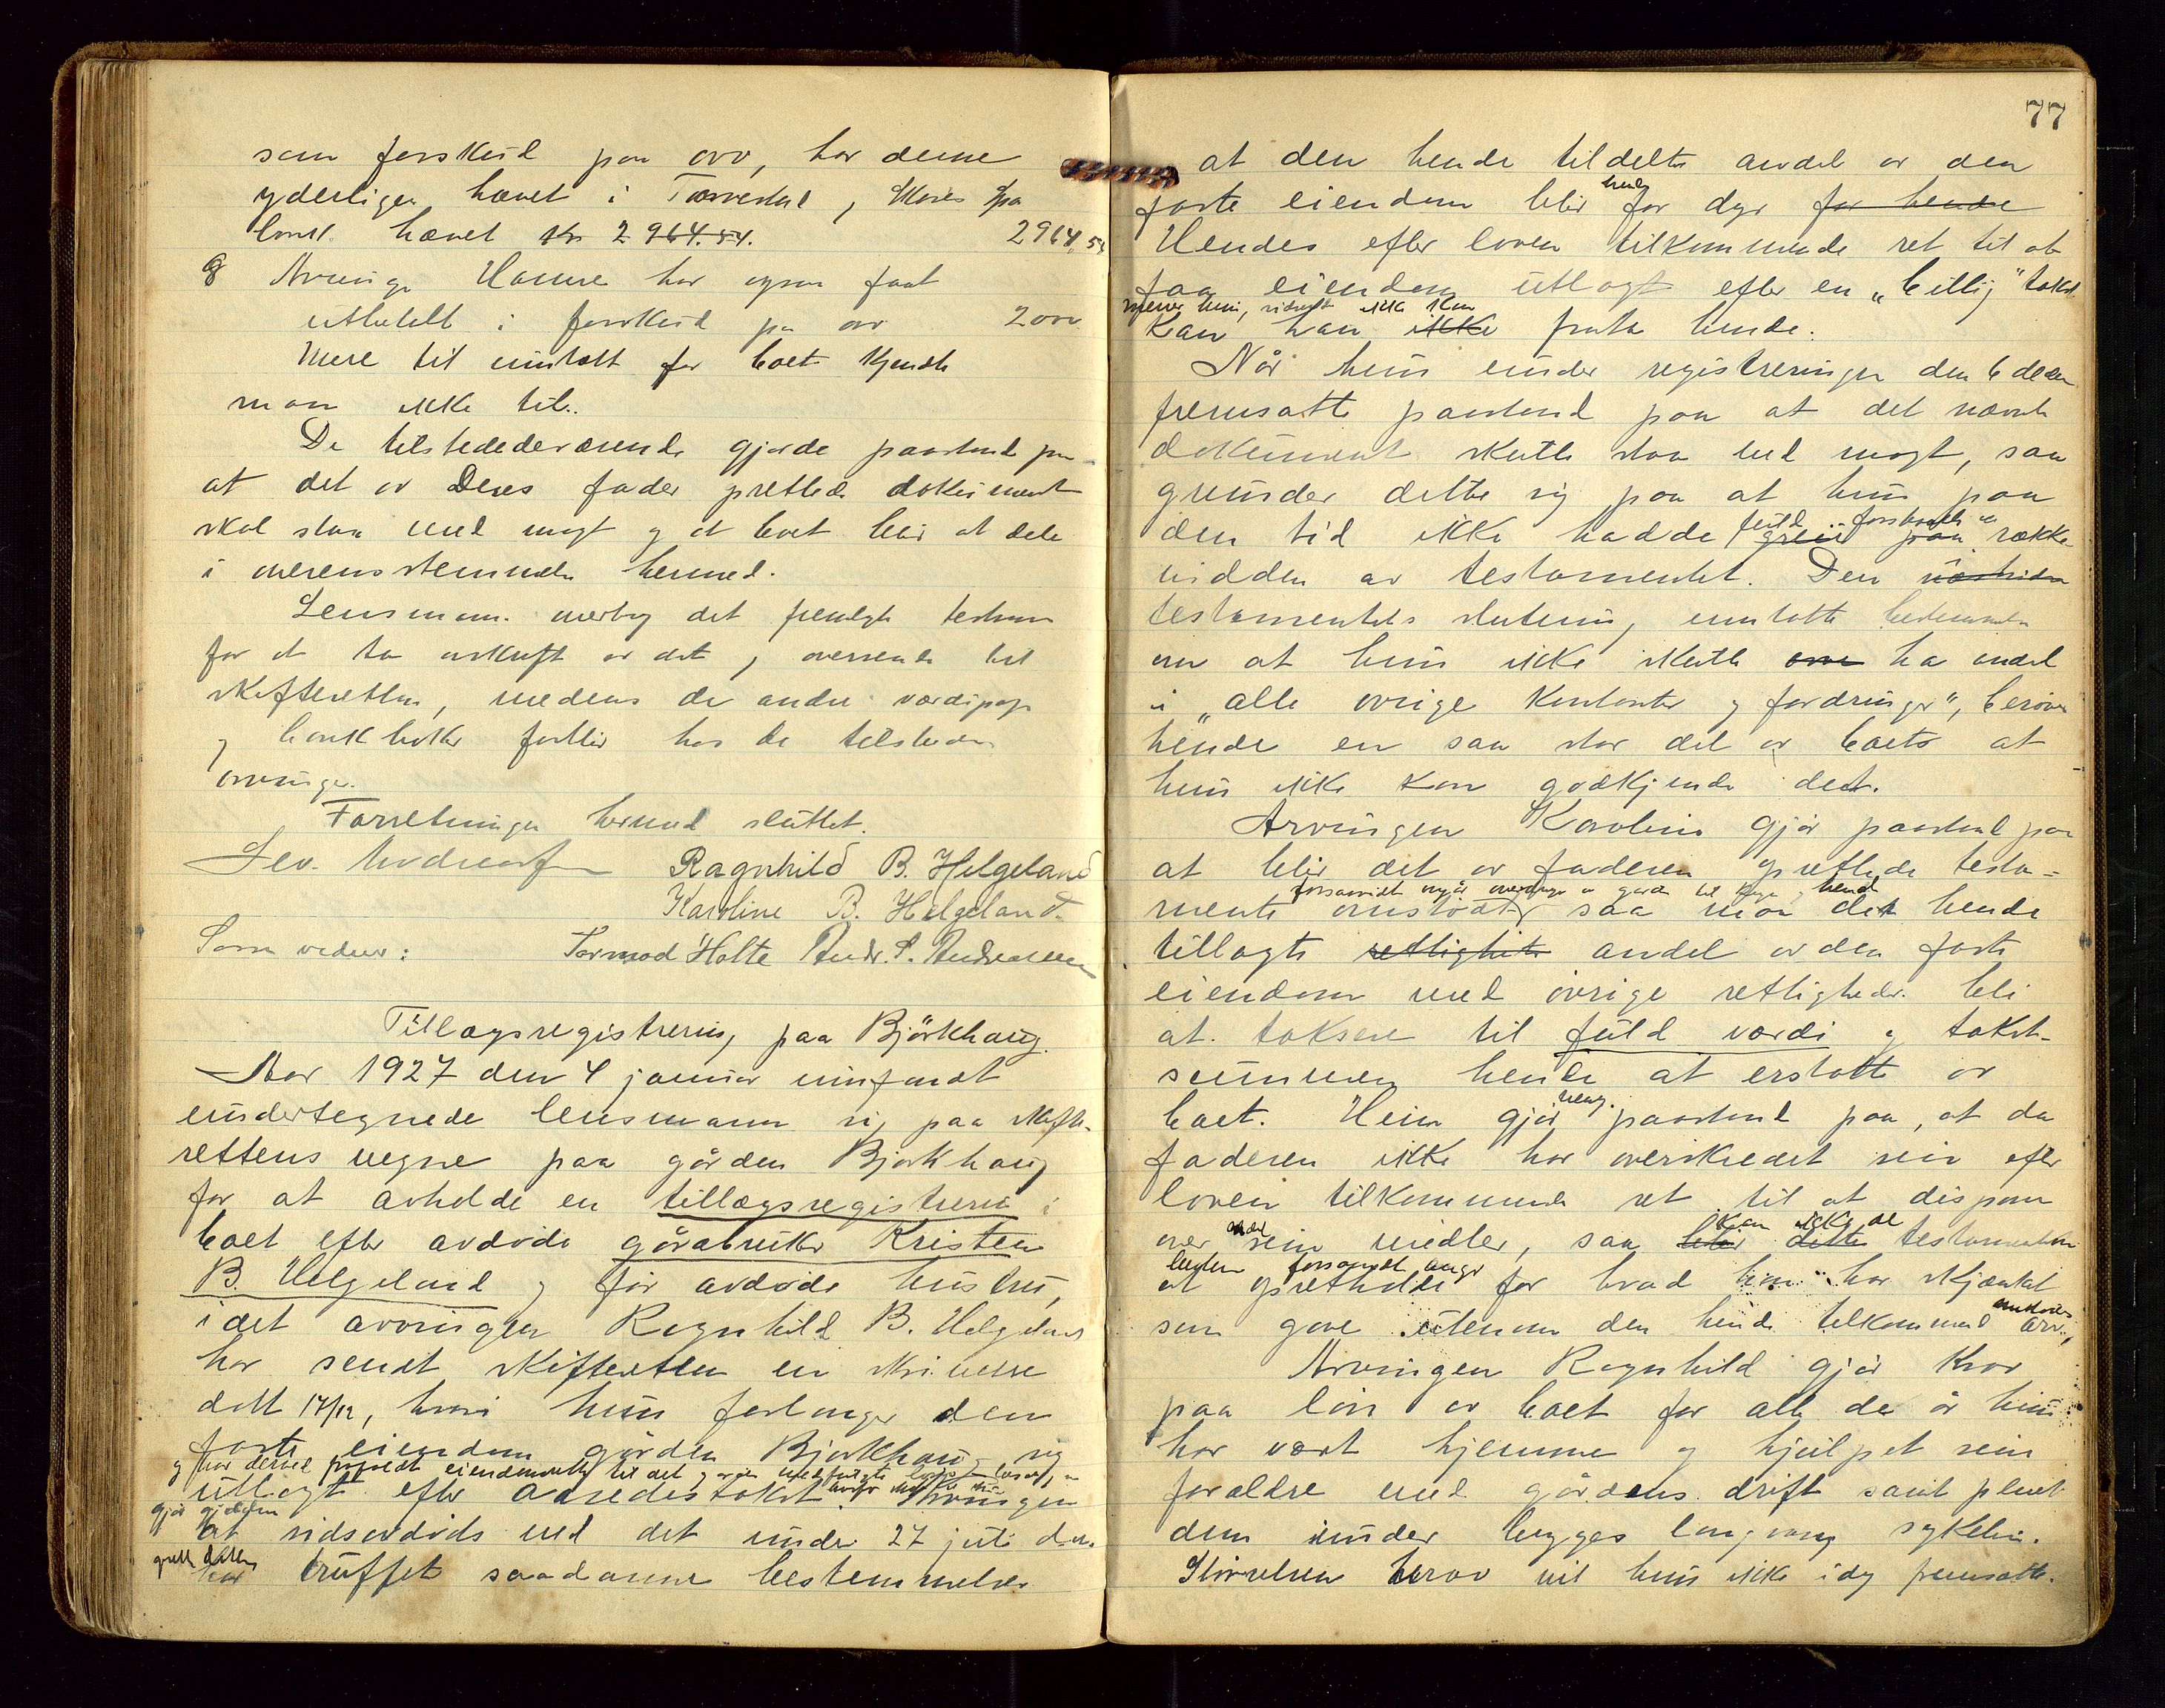 som forskud paa arv, har denne
yderligere hævet i Torvestad, Skaare Spa
bank hævet Kr 2964.54. 2964,54
8 Arving Hanne har ogsaa faat
utbetalt i forskud paa arv 2000
Mere til inntækt for boet kjendte
man ikke til.
De tilstedeværende gjorde paastand paa
at det av Deres fader oprettede dokument
skal staa ved magt og at boet blir at dele
i overensstemmelse hermed.
Lensmann overtog det fremlagte testam
for at ta avskrift av det, oversende til
skifteretten, medens de andre værdipap
og bankbøker forblir hos de tilstedev
arvinger.
Forretningen hermed sluttet.
Sev. Andreassen Ragnhild B. Helgeland
Karoline B. Helgeland.
Som vidner: Tormod Holte Andr. S. Andreassen
Tillægsregistrering paa Björkhaug.
Aar 1927 den 4 januar innfandt
undertegnede lensmann sig paa skifte-
rettens vegne paa gården Bjørkhaug
for at avholde en tillægsregistrering i
boet efter avdøde gårdbruker Kristen
B. Helgeland og før avdøde hustru,
idet arvingen Ragnhild B. Helgeland
har sendt skifteretten en skrivelse
datt 17/12, hvori hun forlanger den
faste eiendom gården Bjørkhaug sig
og har derved eiendomsrett til det
utlagt efter aasædestakst. Arvingen
gjør gjeldende
at sidsavdøde ved det under 27 juli
har truffet saadanne bestemmelser
77
at den hende tildelte andel av den
faste eiendom blir hende for dyr for hende
Hendes efter loven tilkommende ret til at
faa eiendom utlagt efter en „billig" takst
mener hun, ikke kan
kan han ikke frata hende.
Når hun under registreringen den 6 decbr
fremsatte paastand paa at det nævnte
dokument skulle staa ved magt, saa
grunder dette sig paa at hun paa
den tid ikke hadde fuld forstaaelse av række
vidden av testamentet. Den næstsidste
testamentets slutning, inntatte bestemmelse
om at hun ikke skulle ha andel
i „alle øvrige kontanter og fordringer", berøver
hende en saa stor del av boets at
hun ikke kan godkjende det.
Arvingen Karoline gjør paastand paa
at blir det av faderen oprettede testa-
forsaavidt angår overdragelse av gården til hende
mente omstødt, saa må det hende
tillagte rettigheter andel av den faste
eiendom med övrige rettigheder bli
at taksere til fuld værdi og takst-
summen hende at erstatte av
boet. Hun gjør paastand paa, at da
faderen ikke har overskredet sin efter
loven tilkommende ret til at disponere
over sine midler, saa kan ikke testamentet
forsaavidt angår
at opretholde for hvad hun har skjænket
som gave utenom den hende tilkommende arv.
Arvingen Ragnhild gjør krav
paa lön av boet for alle de år hun
har vært hjemme og hjulpet sine
forældre med gårdens drift samt pleiet
dem under begges langvarig sykeleie.
Størrelsen herav vil hun ikke idag fremsatte.